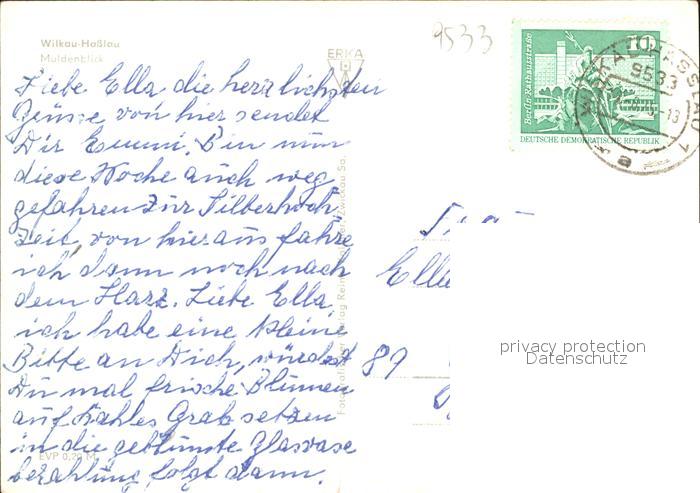 Wilkau-Haßlau
Muldenblick
ERKA
9533
Liebe Ella die herzlichsten
Grüsse von hier sendet
Dir Emmi. Bin nun
diese Woche auch weg
gefahren zur Silberhoch
zeit, von hieraus fahre
ich dann noch nach
dem Harz. Liebe Ella,
ich habe eine kleine
Bitte an Dich, würdest
Du mal frische Blumen
auf Kahles Grab setzen
in die geblümte Glasvase
bezahlung folgt dann.
EVP 0,20 M
Berlin · Rathausstraße
10
DEUTSCHE DEMOKRATISCHE REPUBLIK
9533
-13
a
1
89
privacy protection
Datenschutz